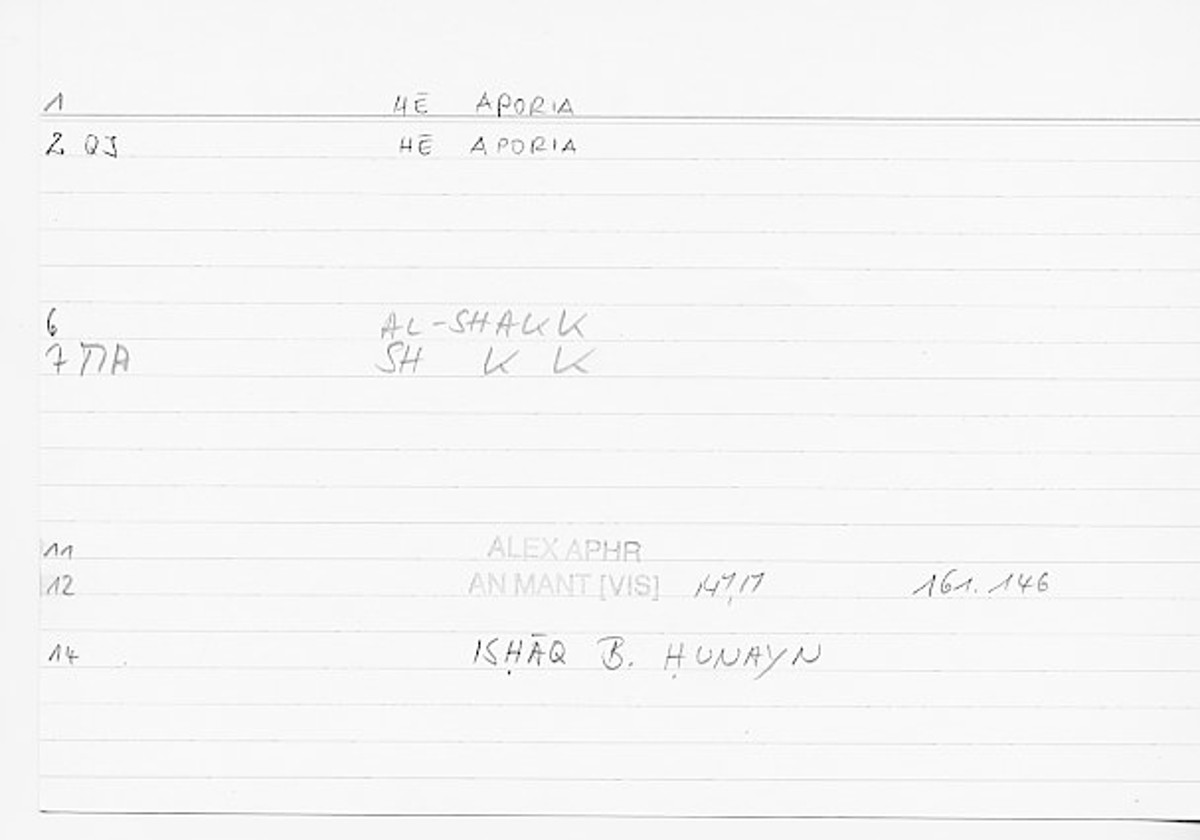 1 HĒ APORIA
2 QJ HĒ APORIA
6 AL-SHAKK
7 SH K K
11 ALEX APHR
12 AN MANT [VIS] 147,17 161.146
14 ISḤĀQ B. ḤUNAYN